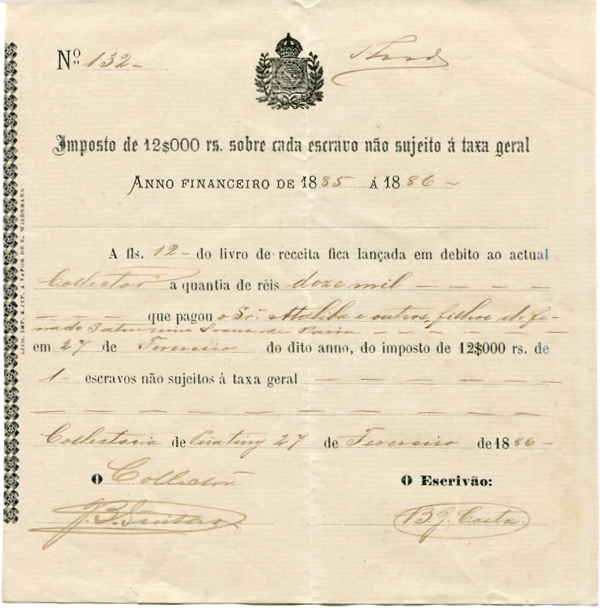 Nº 132-
Imposto de 12$000 rs. sobre cada escravo não sujeito á taxa geral
ANNO FINANCEIRO DE 1885 Á 1886 -
A fls. 12- do livro de receita fica lançada em debito ao actual
Collector a quantia de réis doze mil
que pagou o Snr. e outros, filhos de fi-
nado Saturnino de Paiva
em 27 de Fevereiro do dito anno, do imposto de 12$000 rs. de
1- escravos não sujeitos á taxa geral
Collectoria de 27 de Fevereiro de 1886-
O Collector O Escrivão:
B. J. Costa.